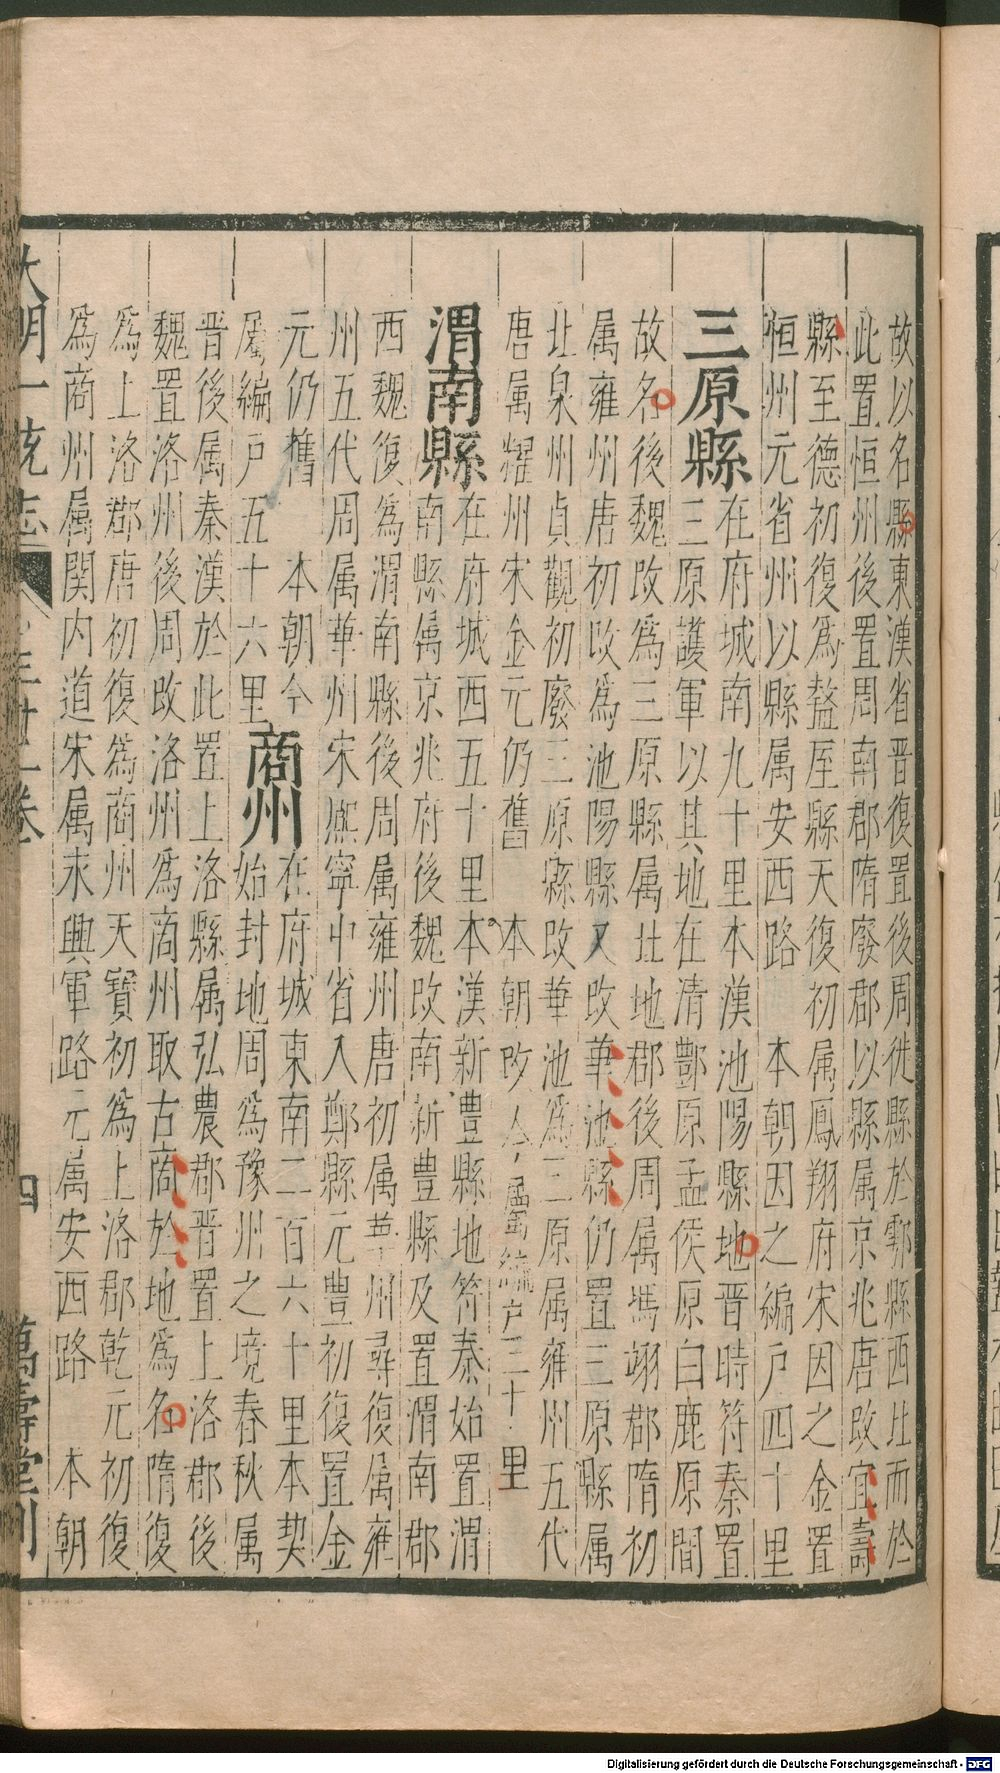 故以名縣東漢省晋復置後周徙縣於鄠縣西北而於
此置恒州後置周南郡隋廢郡以縣属京兆唐改宜壽
縣至德初復為盩厔縣天復初属鳳翔府宋因之金置
恒州元省州以縣属安西路 本朝因之編戶四十里
三原縣在府城南九十里本漢池陽縣地晋時符秦置
三原護軍以其地在清酆原孟侯原白鹿原間
故名後魏改為三原縣属北地郡後周属馮翊郡隋初
属雍州唐初改為池陽縣又改華池縣仍置三原縣属
北泉州貞觀初廢三原縣改華池為三原属雍州五代
唐属耀州宋金元仍舊 本朝改今属編戶三十里
渭南縣在府城西五十里本漢新豊縣地符秦始置渭
南縣属京兆府後魏改南新豊縣及置渭南郡
西魏復為渭南縣後周属雍州唐初属華州尋復属雍
州五代周属華州宋熈寧中省入鄭縣元豊初復置金
元仍舊 本朝今
属編戶五十六里
商州在府城東南二百六十里本契
始封地周為豫州之境春秋属
晋後属秦漢於此置上洛縣属弘農郡晋置上洛郡後
魏置洛州後周改洛州為商州取古商於地為名隋復
為上洛郡唐初復為商州天寶初為上洛郡乾元初復
為商州属関内道宋属永興軍路元属安西路 本朝
大明一统志 三十二卷 四 萬壽堂刊
Digitalisierung gefördert durch die Deutsche Forschungsgemeinschaft - DFG